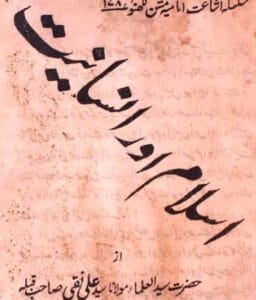 سلسلہ اشاعت امامیہ مشن لکھنؤ ۱۲۸
اسلام اور انسانیت
از
حضرت سید العلماء مولانا سید علی نقی صاحب قبلہ